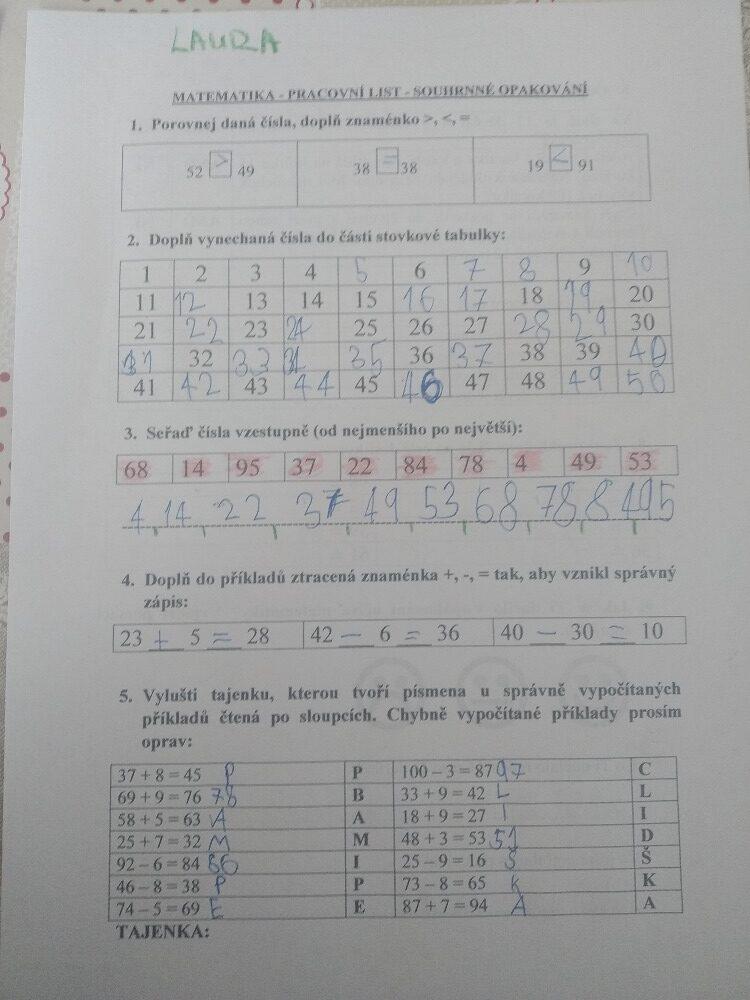 LAURA
MATEMATIKA - PRACOVNÍ LIST - SOUHRNNÉ OPAKOVÁNÍ
1. Porovnej daná čísla, doplň znaménko >, <, =
52 > 49 38 = 38 19 < 91
2. Doplň vynechaná čísla do části stovkové tabulky:
1 2 3 4 5 6 7 8 9 10
11 12 13 14 15 16 17 18 19 20
21 22 23 24 25 26 27 28 29 30
31 32 33 34 35 36 37 38 39 40
41 42 43 44 45 46 47 48 49 50
3. Seřaď čísla vzestupně (od nejmenšího po největší):
68 14 95 37 22 84 78 4 49 53
4 14 22 37 49 53 68 78 84 95
4. Doplň do příkladů ztracená znaménka +, -, = tak, aby vznikl správný
zápis:
23 + 5 = 28 42 – 6 = 36 40 – 30 = 10
5. Vylušti tajenku, kterou tvoří písmena u správně vypočítaných
příkladů čtená po sloupcích. Chybně vypočítané příklady prosím
oprav:
37 + 8 = 45 P P 100 – 3 = 87 97 C
69 + 9 = 76 78 B 33 + 9 = 42 L L
58 + 5 = 63 A A 18 + 9 = 27 I I
25 + 7 = 32 M M 48 + 3 = 53 51 D
92 – 6 = 84 86 I 25 – 9 = 16 Š Š
46 – 8 = 38 P P 73 – 8 = 65 K K
74 – 5 = 69 E E 87 + 7 = 94 A A
TAJENKA: